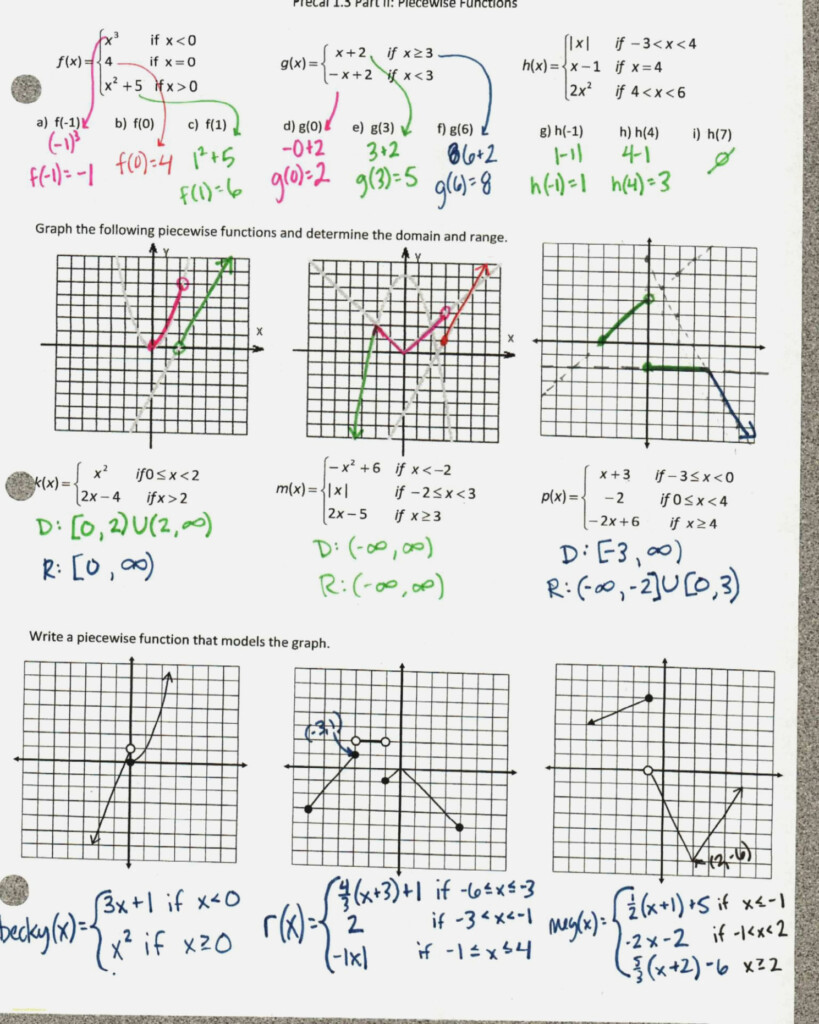 Precal 1.3 Part II: Piecewise Functions
f(x)= { x³ if x<0
4 if x=0
x²+5 if x>0
g(x)= { x+2 if x≥3
−x+2 if x<3
h(x)= { |x| if −3<x<4
x−1 if x=4
2x² if 4<x<6
a) f(-1) b) f(0) c) f(1) d) g(0) e) g(3) f) g(6) g) h(-1) h) h(4) i) h(7)
(-1)³
f(-1)=-1
f(0)=4
1²+5
f(1)=6
-0+2
g(0)=2
3+2
g(3)=5
6+2
g(6)=8
|-1|
h(-1)=1
4-1
h(4)=3
∅
Graph the following piecewise functions and determine the domain and range.
Y
X
Y
X
k(x)= { x² if 0≤x<2
2x−4 if x>2
D: [0,2)U(2,∞)
R: [0,∞)
m(x)= { −x²+6 if x<−2
|x| if −2≤x<3
2x−5 if x≥3
D: (-∞,∞)
R: (-∞,∞)
p(x)= { x+3 if −3≤x<0
−2 if 0≤x<4
−2x+6 if x≥4
D: [-3,∞)
R: (-∞,-2]U[0,3)
Write a piecewise function that models the graph.
(-3,1)
(2,-6)
becky(x)= { 3x+1 if x<0
x² if x≥0
r(x)= { 4/3(x+3)+1 if -6≤x≤-3
2 if -3<x<-1
-|x| if -1≤x≤4
meg(x)= { 1/2(x+1)+5 if x≤-1
-2x-2 if -1<x<2
5/3(x+2)-6 x≥2